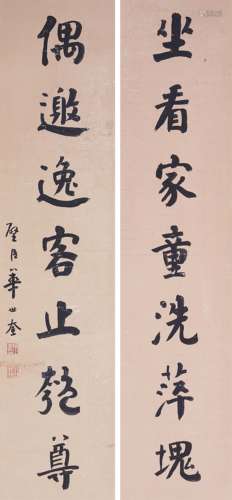 坐看家童洗萍塊
偶邀逸客止匏尊
壁臣華世奎